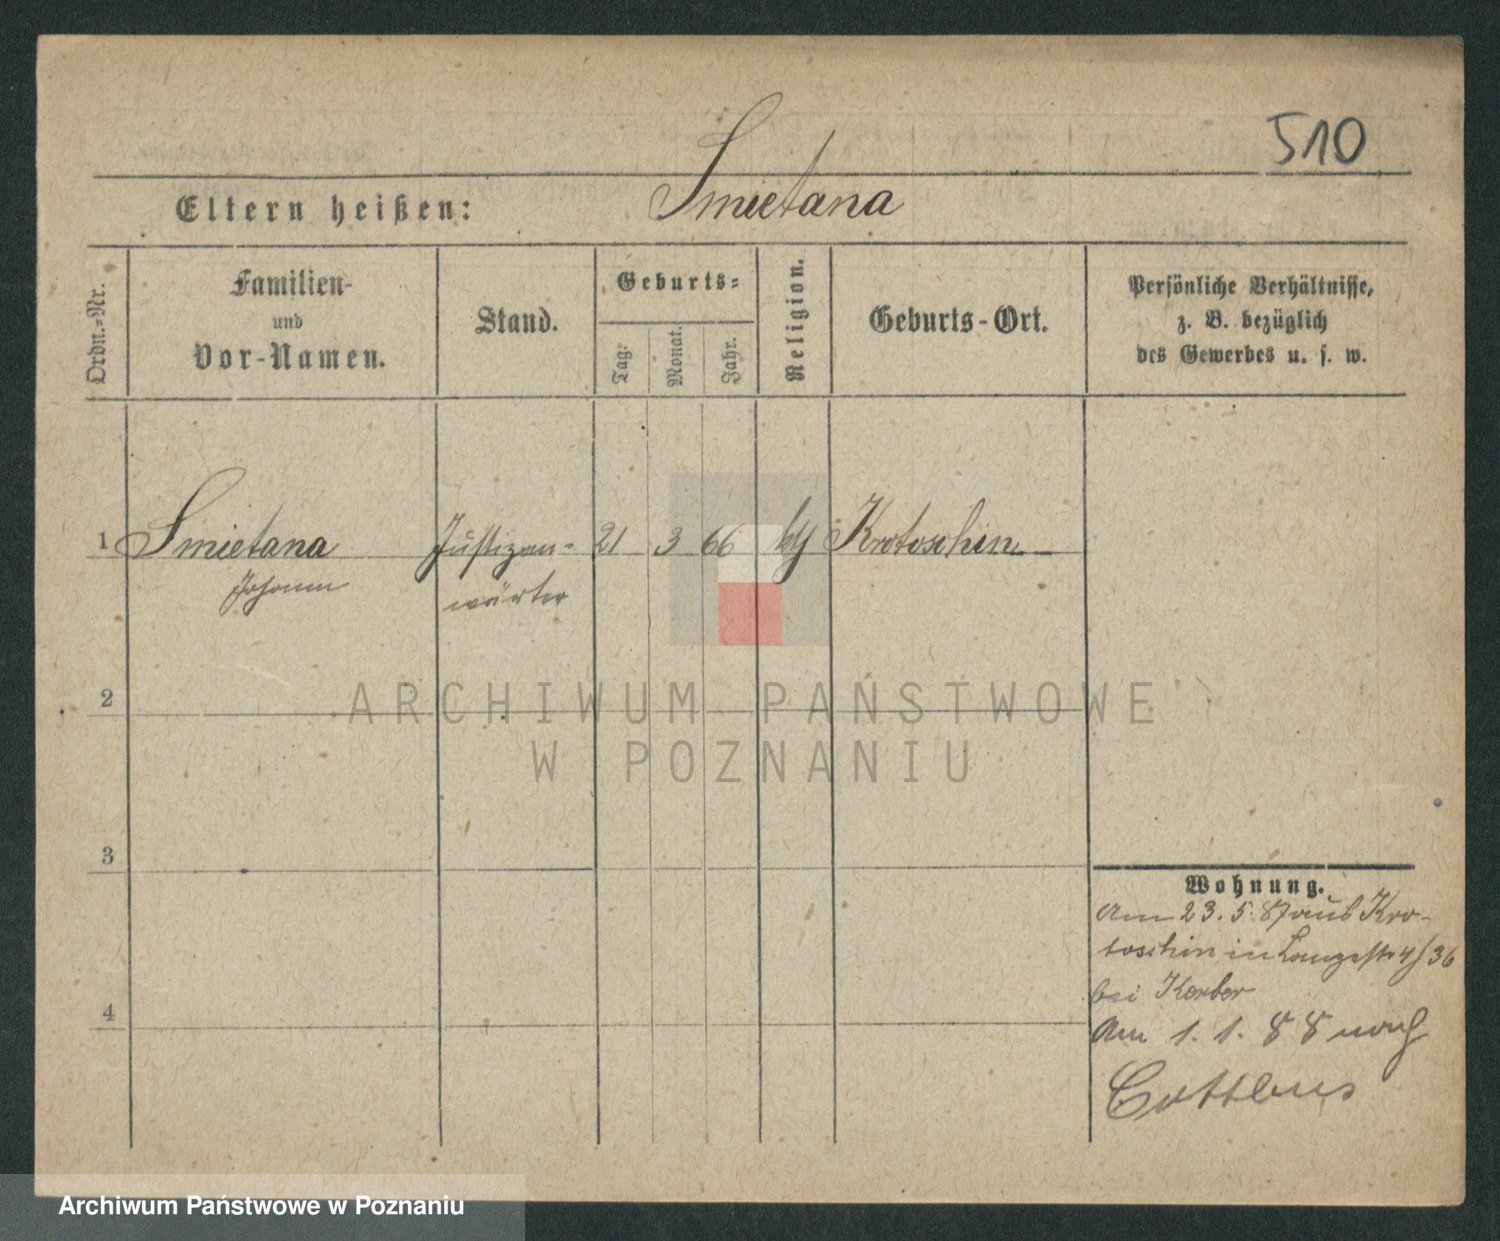 510
Smietana
Eltern heißen:
Ordn.-Nr.
Familien-
und
Vor-Namen.
Stand.
Geburts-
Tag.
Monat.
Jahr.
Religion.
Geburts-Ort.
Persönliche Verhältnisse,
z. B. bezüglich
des Gewerbes u. s. w.
1 Smietana Justizan- 21 3 66 Krotoschin
Johann wärter
2
ARCHIWUM PAŃSTWOWE
W POZNANIU
3
Wohnung.
Am 23. 5. 87 aus Kro-
toschin in Langestr 4/36
bei Kerber
4
Am 1. 1. 88 nach
Cottbus
Archiwum Państwowe w Poznaniu